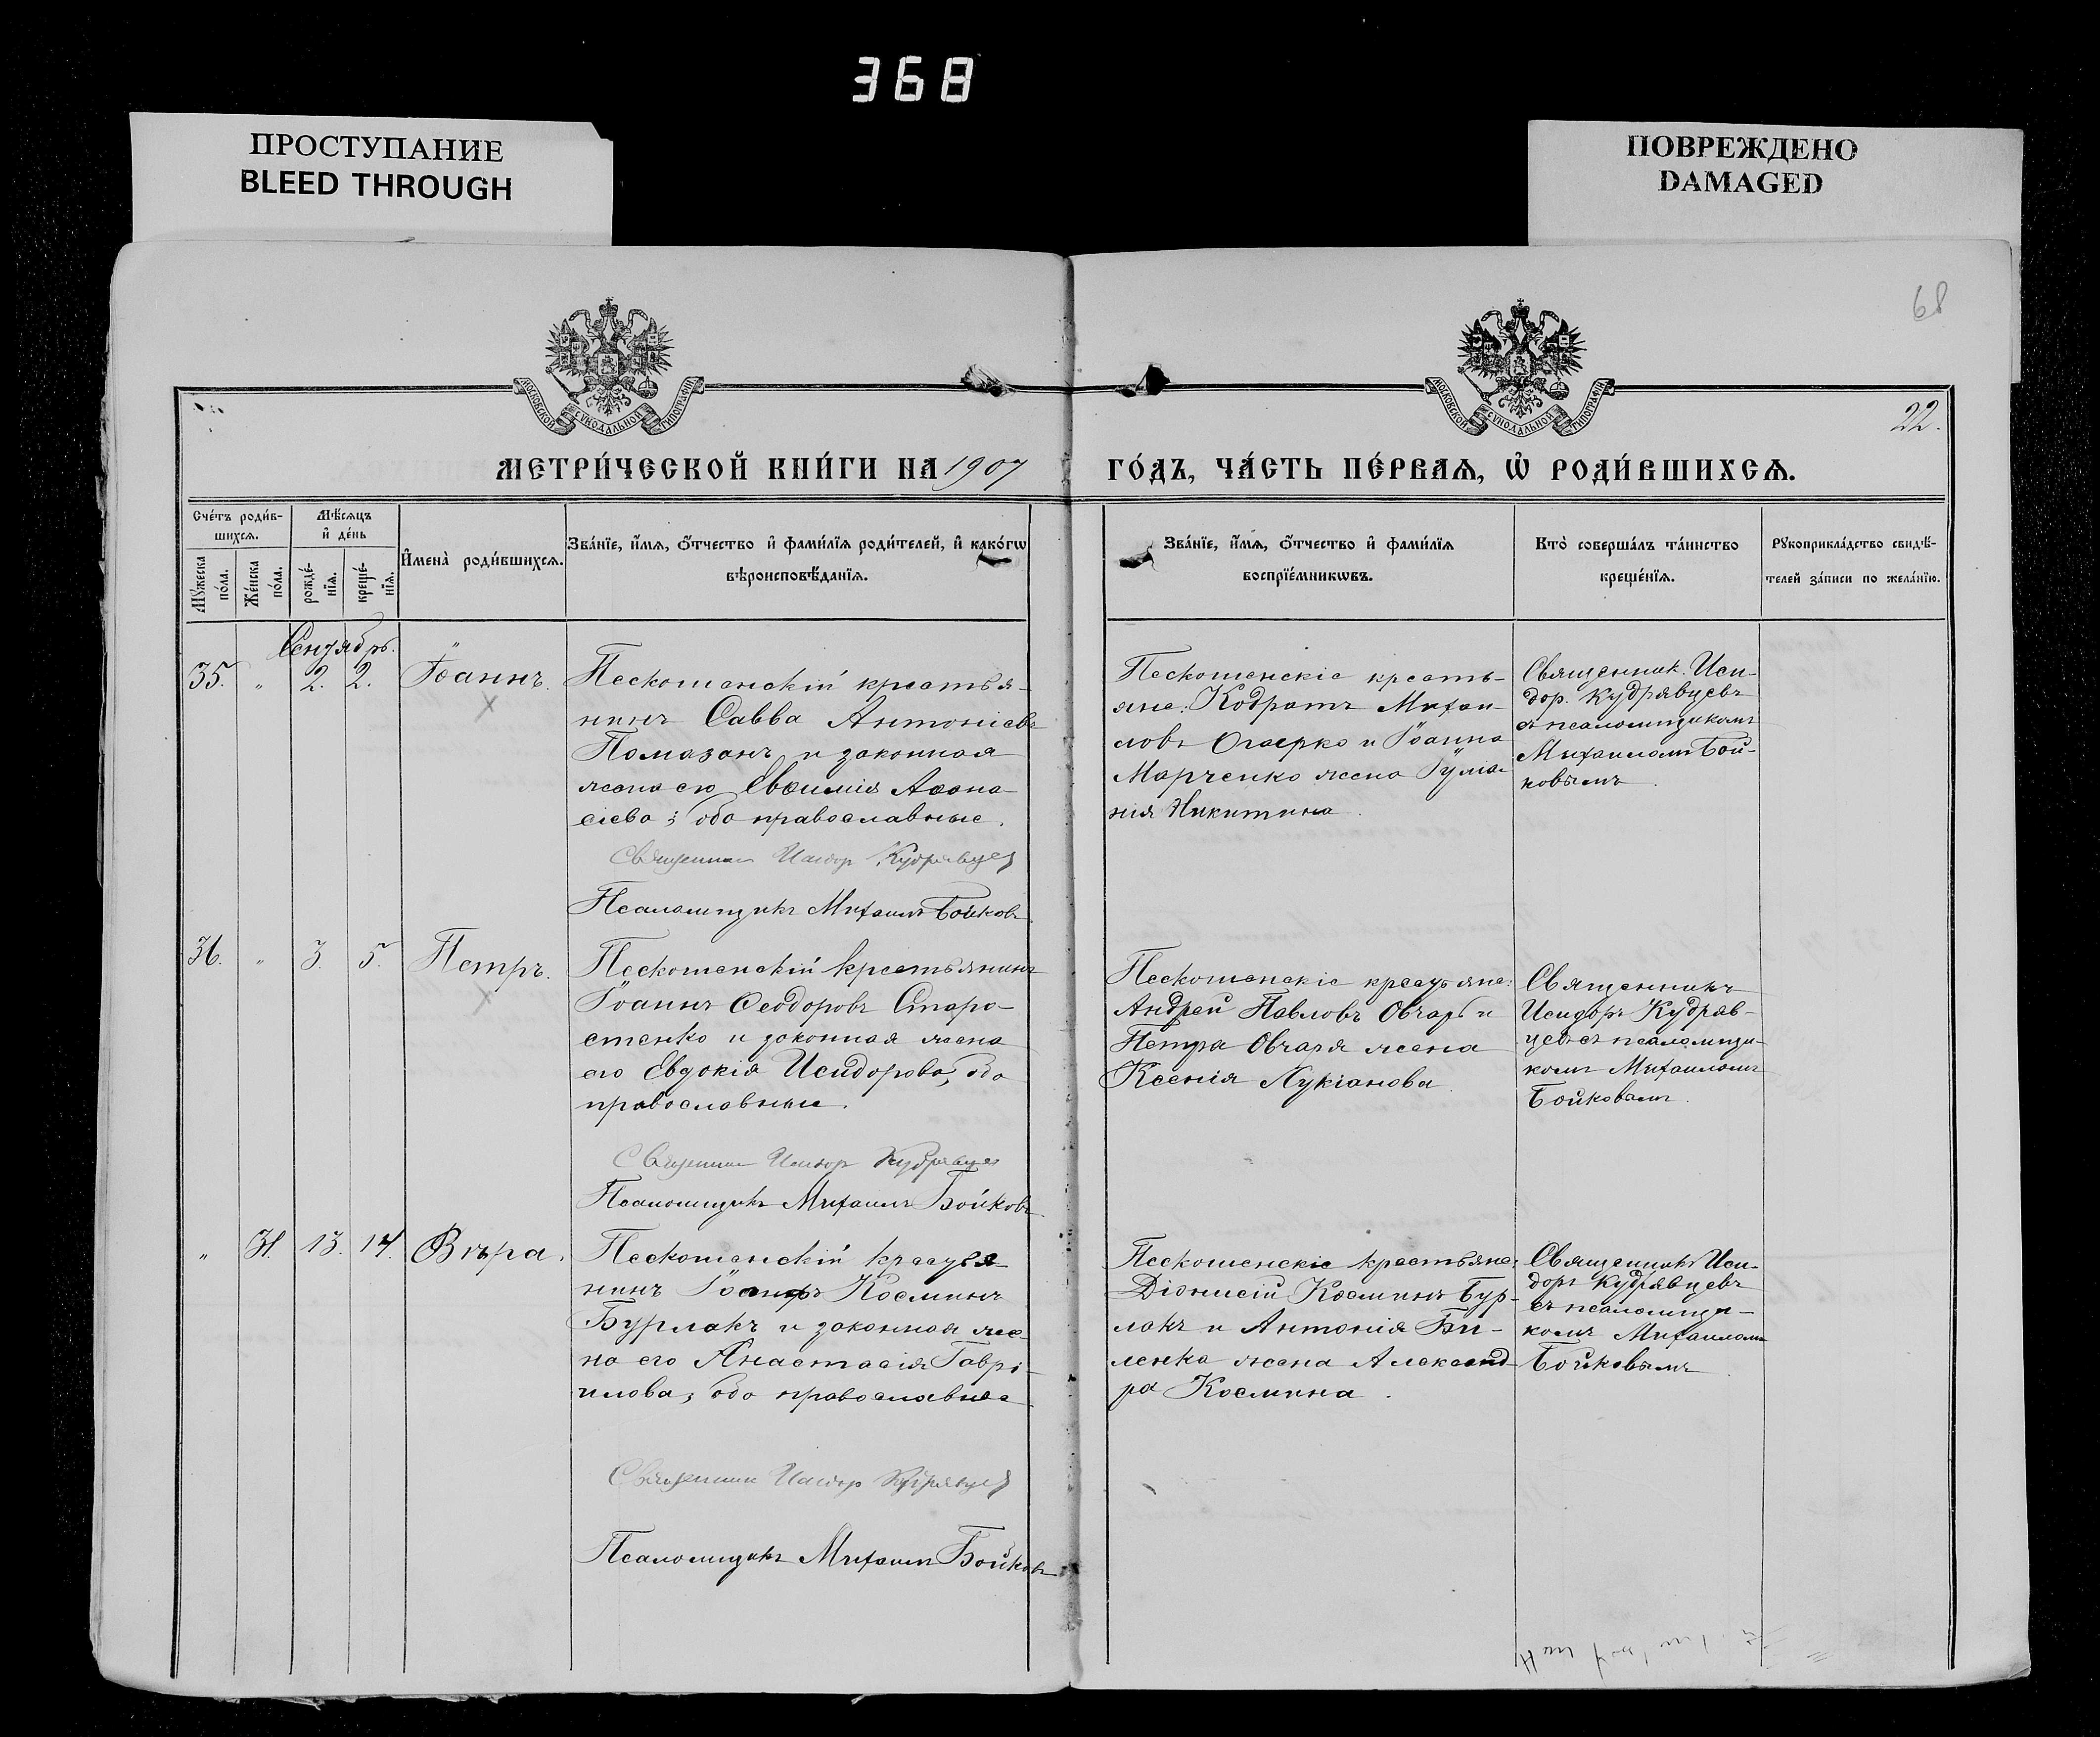 368
ПРОСТУПАНИЕ
BLEED THROUGH
ПОВРЕЖДЕНО
DAMAGED
68
МОСКОВСКОЙ СѴНОДАЛЬНОЙ ТИПОГРАФІИ
МОСКОВСКОЙ СѴНОДАЛЬНОЙ ТИПОГРАФІИ
22.
МЕТРИ́ЧЕСКОЙ КНИ́ГИ НА 1907
ГО́ДЪ, ЧА́СТЬ ПЕ́РВАѦ, Ѽ РОДИ́ВШИХСѦ.
Сче́тъ роди́в-
шихсѧ.
Мꙋ́жеска
по́ла.
Же́нска
по́ла.
Мѣ́сѧцъ
и҆ де́нь
рожде́-
нїѧ.
креще́-
нїѧ.
И҆мена̀ роди́вшихсѧ.
Зва́нїе, и҆́мѧ, ѻ҆́тчество и҆ фами́лїѧ роди́телей, и҆ како́гѡ
вѣроисповѣ́данїѧ.
Зва́нїе, и҆́мѧ, ѻ҆́тчество и҆ фами́лїѧ
воспрїе́мникѡвъ.
Кто̀ соверша́лъ та́инство
креще́нїѧ.
Рꙋкоприкла́дство свидѣ́-
телей за́писи по жела́нїю.
Сентябрь.
35. " 2. 2. Іоаннъ.
Пескошенскій крестья-
нинъ Савва Антоніевъ
Помазанъ и законная
жена его Евѳимія Аѳана-
сіева; оба православные.
Священник Исидор Кудрявцев
Псаломщикъ Михаилъ Бойковъ
Пескошенскіе кресть-
яне: Кодратъ Михаи-
ловъ Огаерко и Іоанна
Марченко жена Іулiа-
нія Никитина.
Священник. Иси-
дор. Кудрявцевъ
съ псаломщикомъ
Михаиломъ Бой-
ковымъ.
36. " 3. 5. Петръ.
Пескошенскій крестьянинъ
Іоаннъ Ѳеодоровъ Старо-
стенко и законная жена
его Евдокія Исидорова, оба
православные.
Священник Исидор Кудрявцев
Псаломщикъ Михаилъ Бойковъ.
Пескошенскіе крестьяне:
Андрей Павловъ Овчарь и
Петра Овчаря жена
Ксенія Лукіанова.
Священникъ
Исидоръ Кудряв-
цевъ съ псаломщи-
комъ Михаиломъ
Бойковымъ.
" 31. 13. 14. Вѣра.
Пескошенскій крестья-
нинъ Іосифъ Косминъ
Бурлакъ и законная же-
на его Анастасія Гаврі-
илова; оба православные
Священник Исидор Кудрявцев
Псаломщикъ Михаилъ Бойковъ
Пескошенскіе крестьяне:
Діонисій Косминъ Бур-
лакъ и Антонія Би-
ленка жена Александ-
ра Космина.
Священникъ Иси-
доръ Кудрявцевъ
съ псаломщи-
комъ Михаиломъ
Бойковымъ.